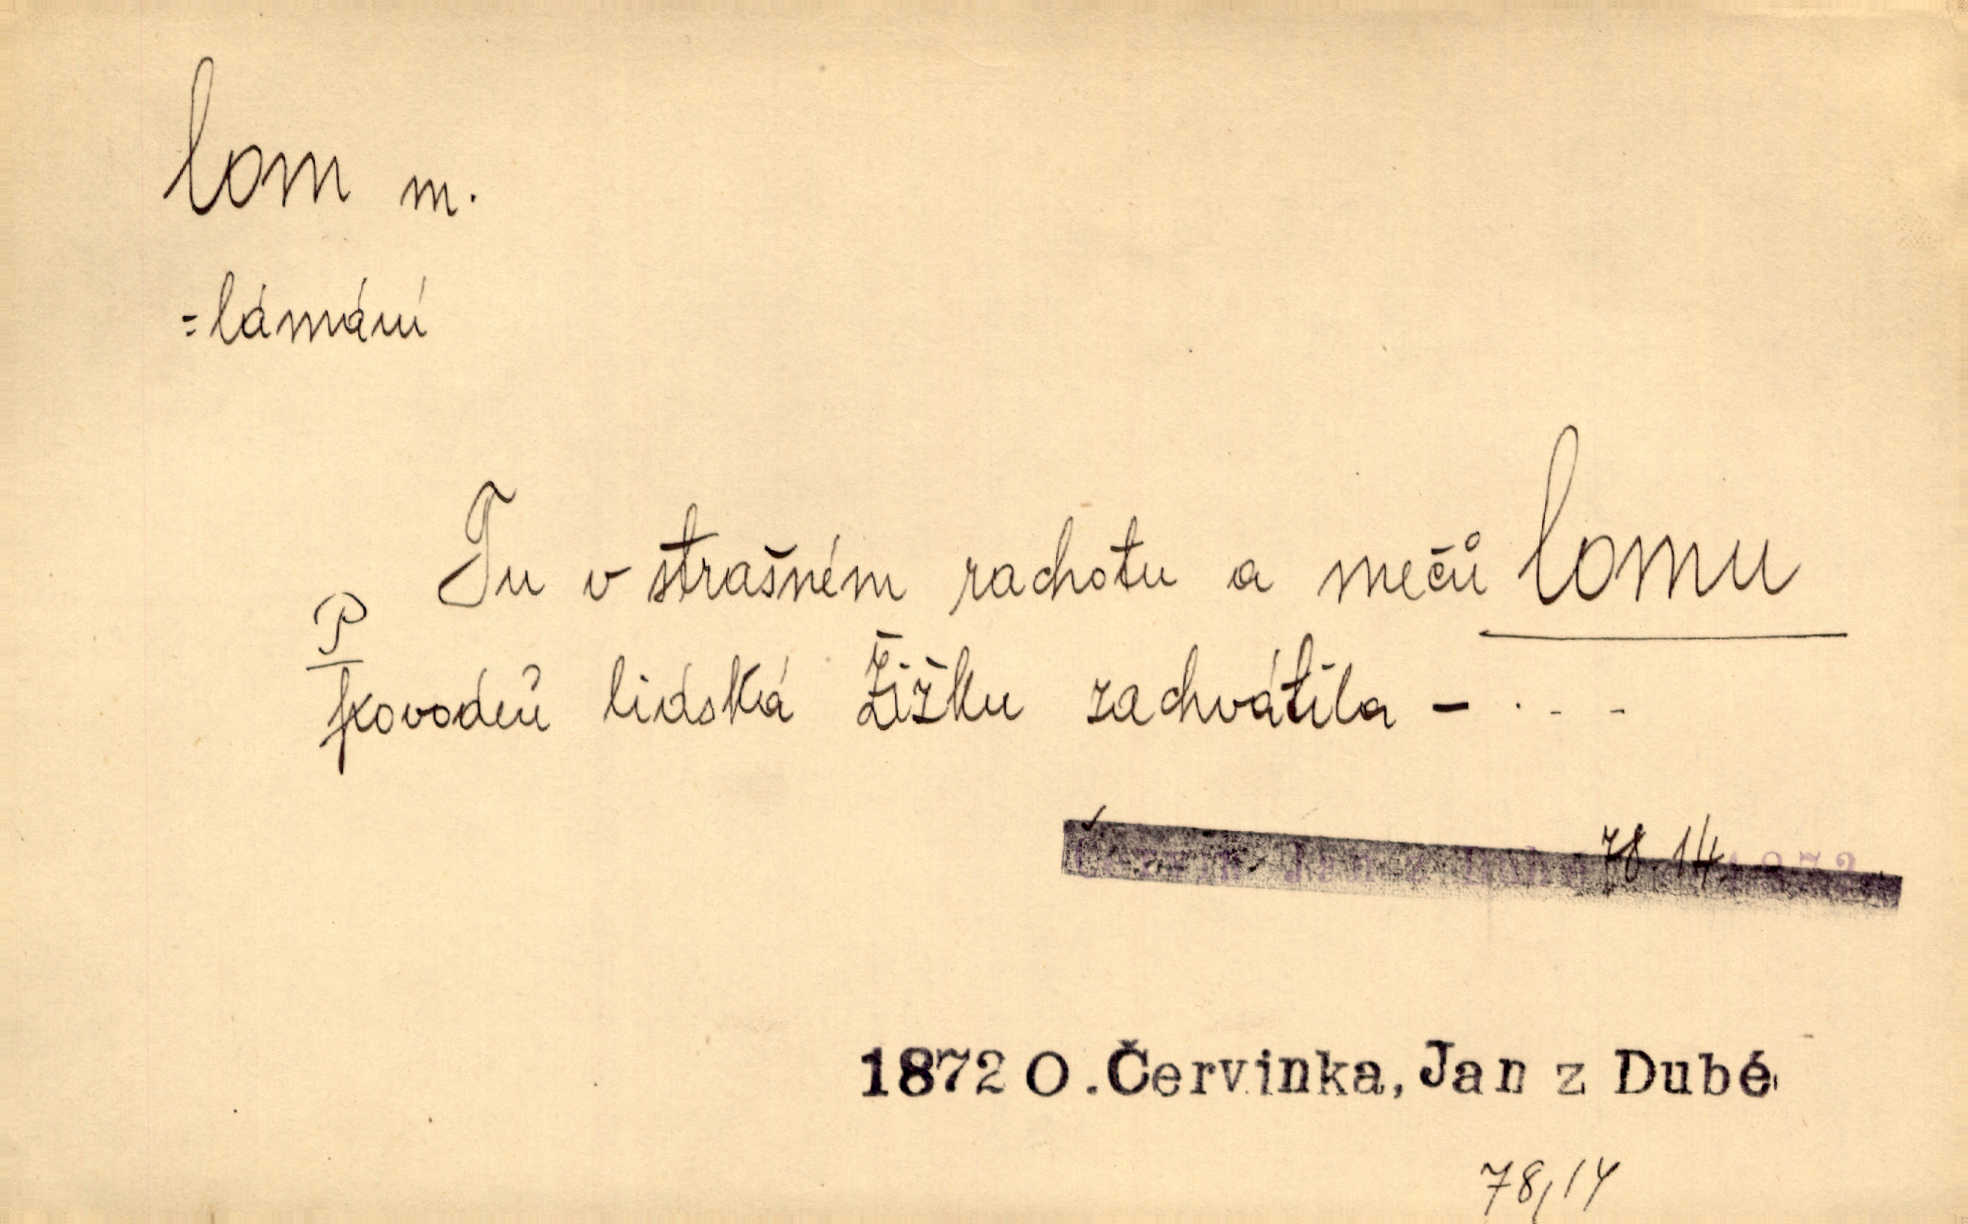 lom m.
=lámání
Tu v strašném rachotu a mečů lomu
P
povodeň lidská Žižku zachvátila - . . -
78.14
1872 O. Červinka, Jan z Dubé
78,14